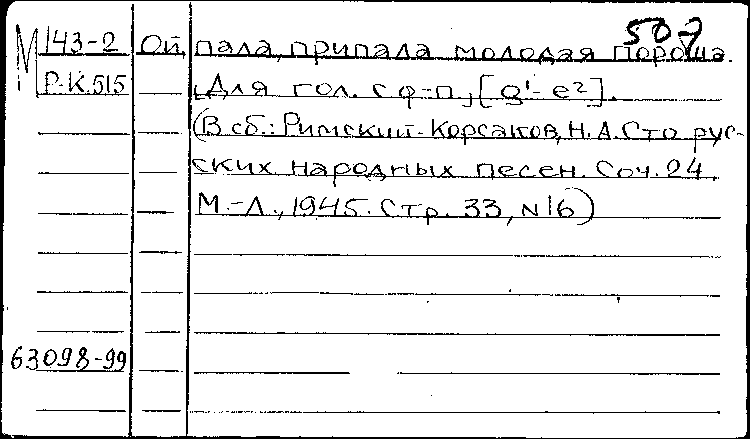 507
М 143-2 Ой, пала, припала молодая пороша.
Р-К.515 [Для гол. с ф-п.], [g¹-e²].
(В сб.: Римский-Корсаков, Н.А. Сто рус-
ских народных песен. Соч. 24.
М.-Л., 1945. Стр. 33, №16)
63098-99